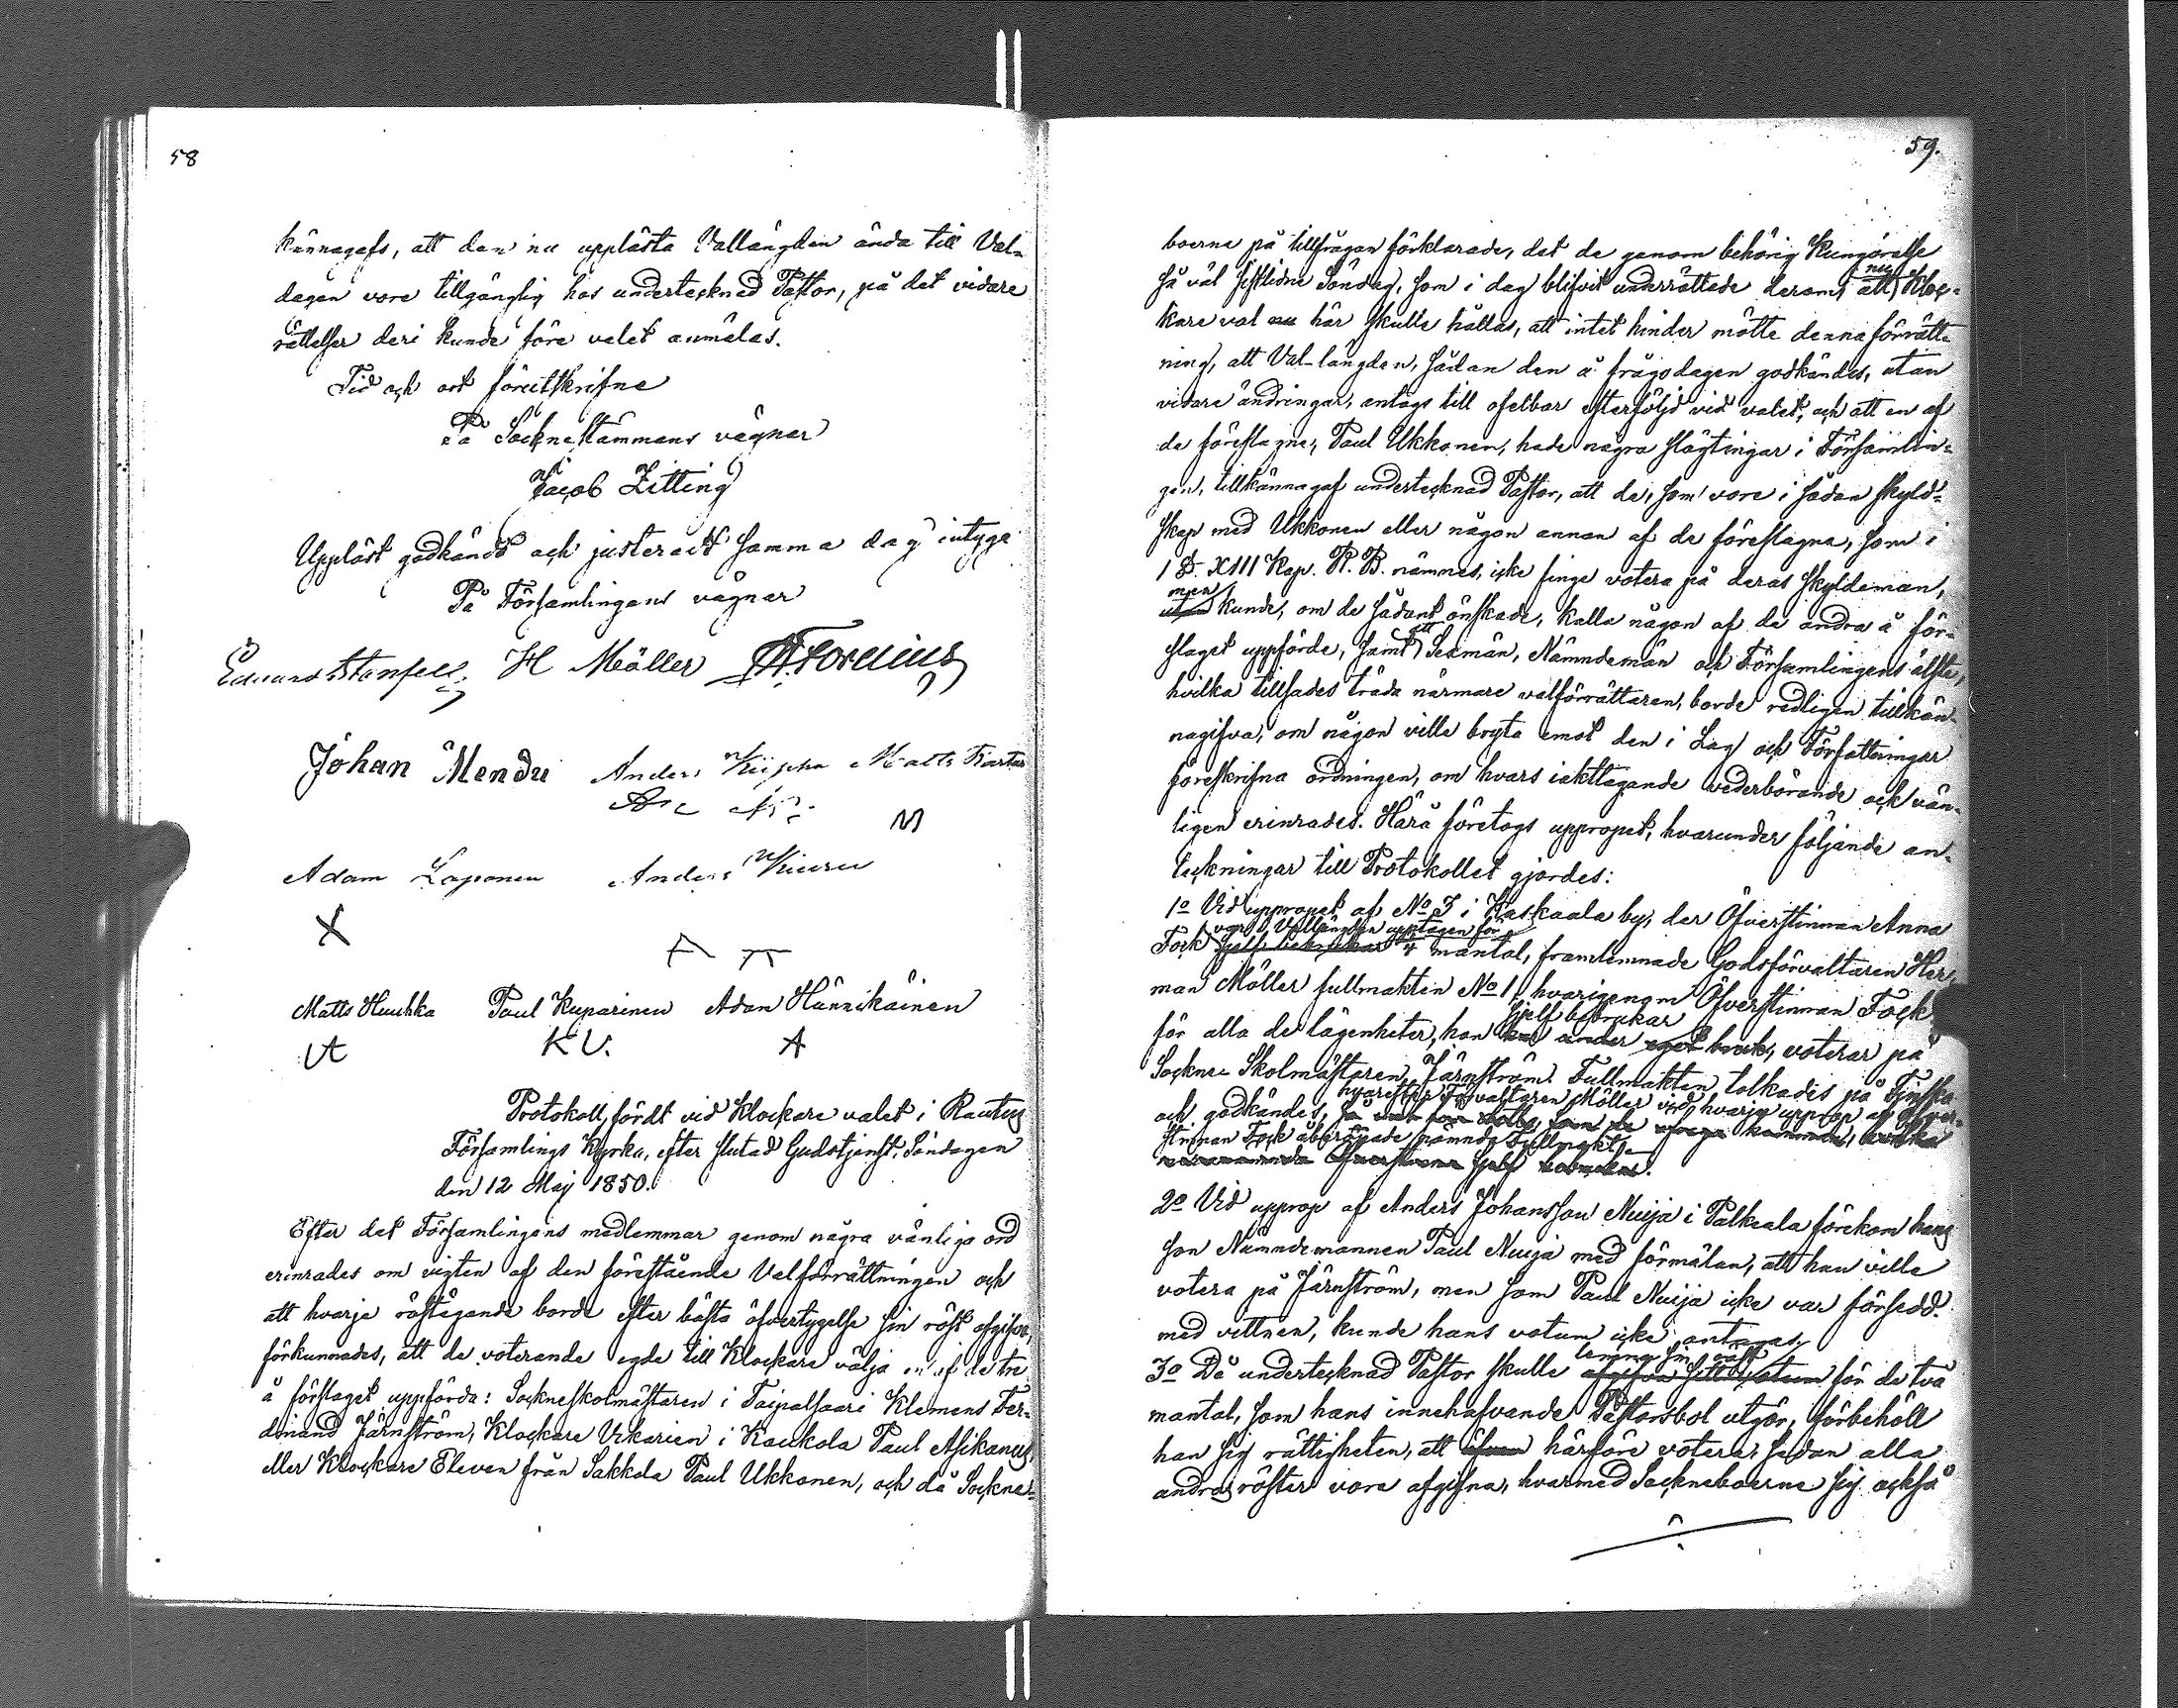 58
kännagafs, att den nu upplästa Vallängden ända till Val-
dagen vore tillgänglig hos undertecknad Pastor, på det vidare
rättelser deri kunde före valet anmälas.
Tid och ort förutskrifne
På Sockne stämmans vägnar
Jacob Zitting
Uppläst godkändt och justeradt samma dag intyga
På Församlingens vägnar
Eduard H Möller
Johan Mendu Anders Matts
M
Adam Loponen Anders Kiuru
X
Matts Huuhka Paul Kuparinen Adam Hännikäinen
K U. A
Protokoll, fördt vid Klockare valet i Rautus
Församlings Kyrka, efter slutad Gudstjenst, Söndagen
den 12 Maj 1850.
Efter det Församlingens medlemmar genom några vänliga ord
erinrades om vigten af den förestående Valförrättningen och
att hvarje röstägande borde efter bästa öfvertygelse sin röst afgifva,
förkunnades, att de voterande egde till Klockare välja en af de tre
å förslaget uppförda: Sockneskolmästaren i Taipalsaari Klemens Fer-
dinand Järnström, Klockare Vikarien i Kaukola Paul Asikanus,
eller Klockare Eleven från Sakkola Paul Ukkonen, och då Sockne-
59.
boerne på tillfrågan förklarade, det de genom behörig Kungörelse
så väl sistlidne Söndag, som i dag blifvit underrättade derom, att nu Kloc-
kare val nu här skulle hållas, att intet hinder mötte denna förrätt-
ning, att Val-längden, sådan den å frågodagen godkändes, utan
vidare ändringar, antogs till ofelbar efterföljd vid valet, och att en af
de föreslagne, Paul Ukkonen, hade några slägtingar i Församlin-
gen, tillkännagaf undertecknad Pastor, att de, som vore i sådan skyld-
skap med Ukkonen eller någon annan af de föreslagna, som i
1 §. XIII Kap. R. B. nämnes, icke finge votera på deras skyldeman,
men
utan kunde, om de sådant önskade, kalla någon af de andra å för-
slaget uppförde, samt att Sexmän, Nämndemän och Församlingens älste,
hvilka tillsades träda närmare valförrättaren, borde redligen tillkän-
nagifva, om någon ville bryta emot den i Lag och Författningar
föreskrifna ordningen, om hvars iakttagande vederbörande ock vän-
ligen erinrades. Härå företogs uppropet, hvarunder följande an-
teckningar till Protokollet gjordes:
1o Vid uppropet af No 3 i Haskaala by, der Öfverstinnan Anna
var i Vallängden upptagen för
Fock mantal, framlemnade Godsförvaltaren Her-
man Möller fullmakten No 1, hvarigenom Öfverstinnan Fock
sjelf bebrukar
för alla de lägenheter, hon har under eget bruk, voterar på
Sockne Skolmästaren Järnström. Fullmakten tolkades på Finska
hvarefter Förvaltaren Möller vid hvarje upprop af Öfver-
och godkändes,
stinnan Fock åberopade nämnda Fullmakt.
2o Vid upprop af Anders Johansson Nuija i Palkeala förekom hans
son Nämndemannen Paul Nuija med förmälan, att han ville
votera på Järnström, men som Paul Nuija icke var försedd
med vittnen, kunde hans votum icke antagas.
lemna sin röst
3o Då undertecknad Pastor skulle afgifva sitt votum för de två
mantal, som hans innehafvande Pastorsbol utgör, förbehöll
han sig rättigheten, att äfven härföre votera, sedan alla
andra röster vore afgifna, hvarmed Sockneboerne sig också